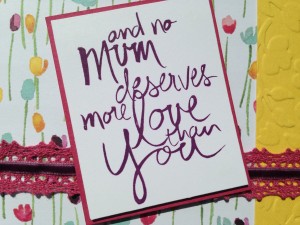 and no
Mum
deserves
more love
than
you